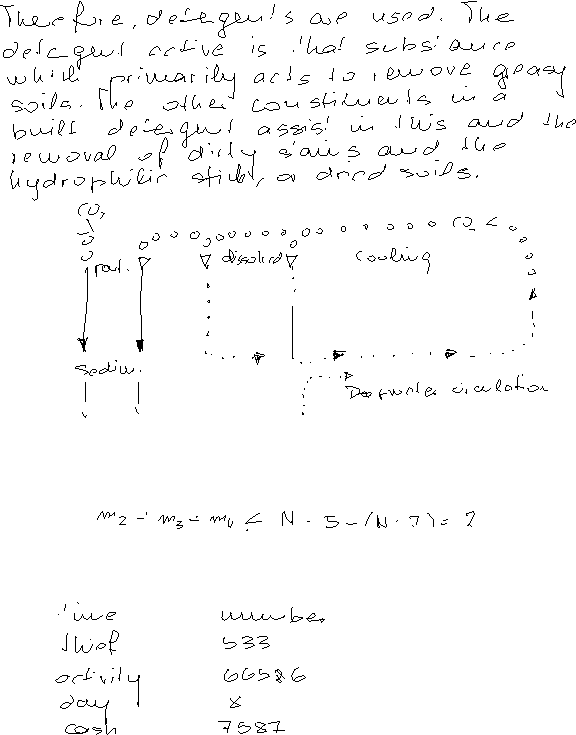 Therefore, detergents are used. The
detergent active is that substance
which primarily acts to remove greasy
soils. The other constituents in a
built detergent assist in this and the
removal of dirty stains and the
hydrophilic sticky or dried soils.
CO2
CO2
part. dissolved cooling
sedim.
Deepwater circulation
m2 - m3 - m4 ≤ N - 5 - (N - 7) = 2
time number
thief 533
activity 66526
day 8
cash 7587